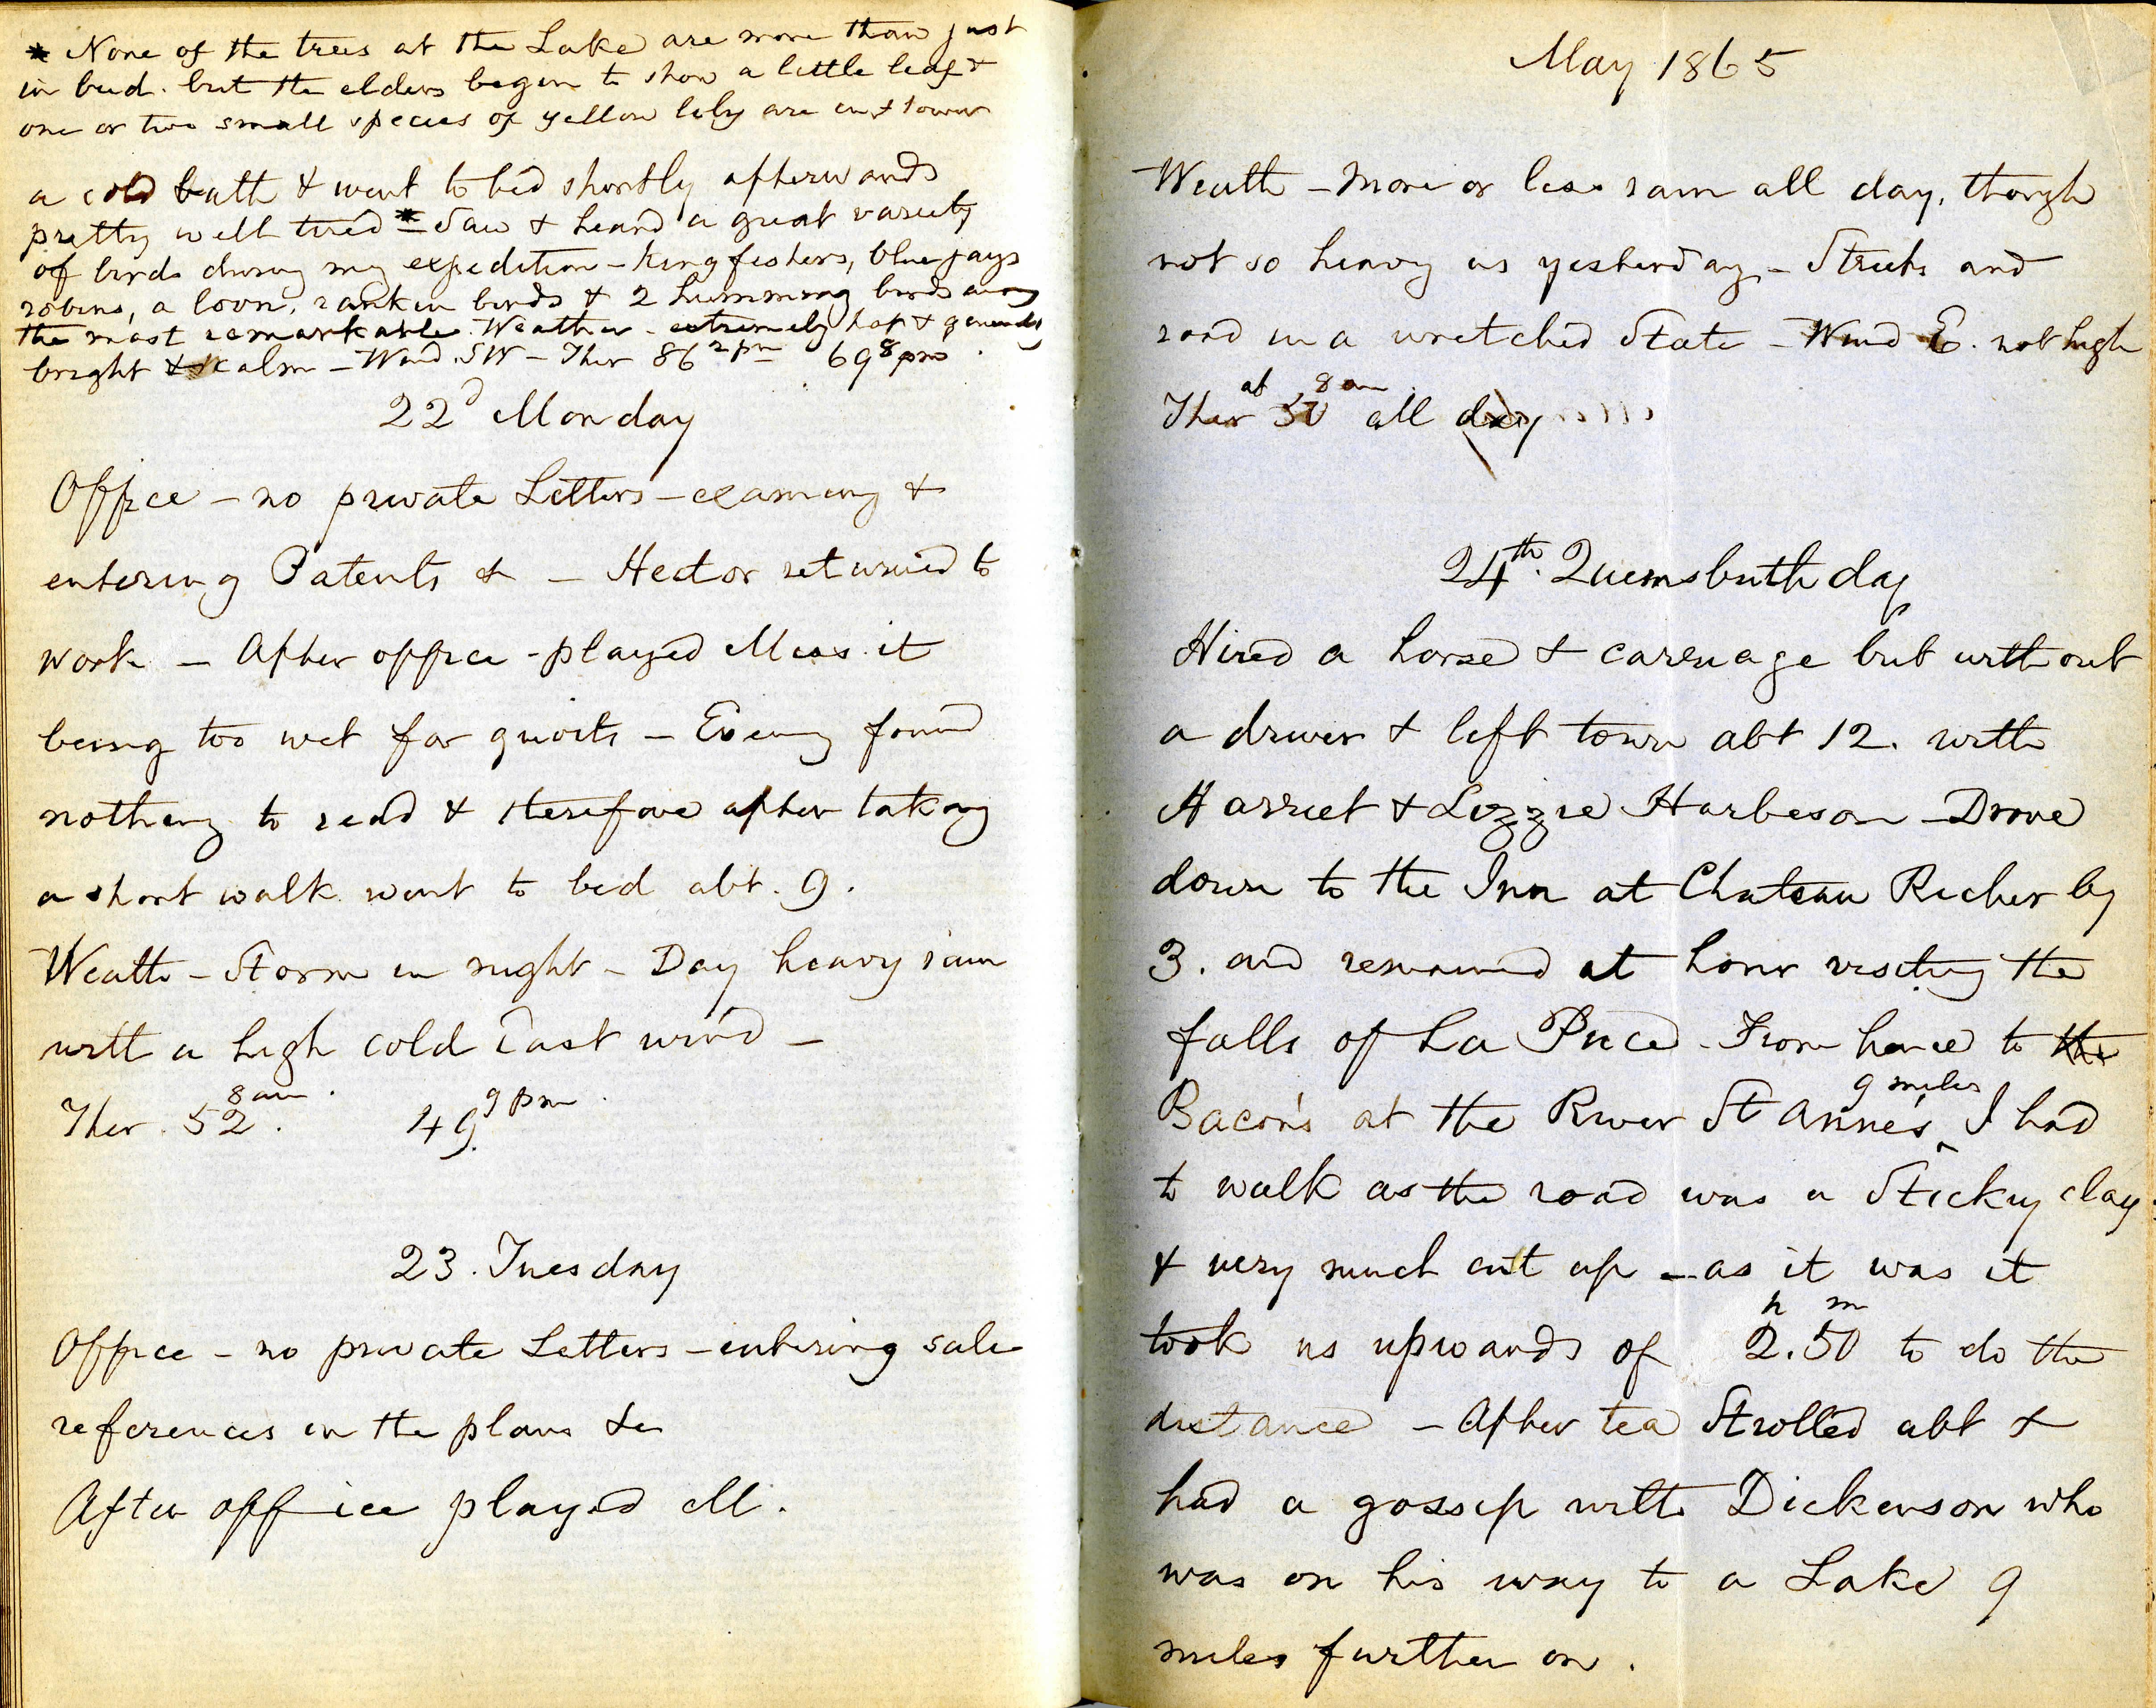 * None of the trees at the Lake are more than just
in bud. but the elders begin to show a little leaf &
one or two small species of yellow lily are in
a cold bath & went to bed shortly afterwards
pretty well tired * – Saw & heard a great variety
of birds during my expedition – Kingfishers, blue jays
robins, a loon, birds & 2 humming birds
the most remarkable. Weather – extremely hot & generally
bright & calm – Wind SW – Ther 86 2 pm 69 8 pm
22d Monday
Office – no private Letters – examing &
entering Patents & – Hector returned to
work – After office – played Miss it
being too wet for quoits – Eveing found
nothing to read & therefore after taking
a short walk went to bed abt. 9.
Weathr – Storm in night – Day heavy rain
with a high cold East wind –
Ther. 52 8 am. 49. 9 pm.
23. Tuesday
Office – no private Letters – entering sale
references in the plans &c
After office played M.
May 1865
Weathr – More or less rain all day, though
not so heavy as yesterday – Streets and
road in a wretched State – Wind E. not high
Ther at 8 am 50 all day
24th. Queens birth day
Hired a horse & carriage but without
a driver & left town abt 12. with
Harriet & Lizzie Harbeson – Drove
down to the Inn at Chateau Richer by
3. and remained at hour visiting the
falls of La Puce – From hence to the
Bacon's at the River St Anne's 9 miles I had
to walk as the road was a Sticky clay
& very much cut up – as it was it
took us upwards of 2h.50m to do the
distance – After tea Strolled abt &
had a gossip with Dickenson who
was on his way to a Lake 9
miles further on.